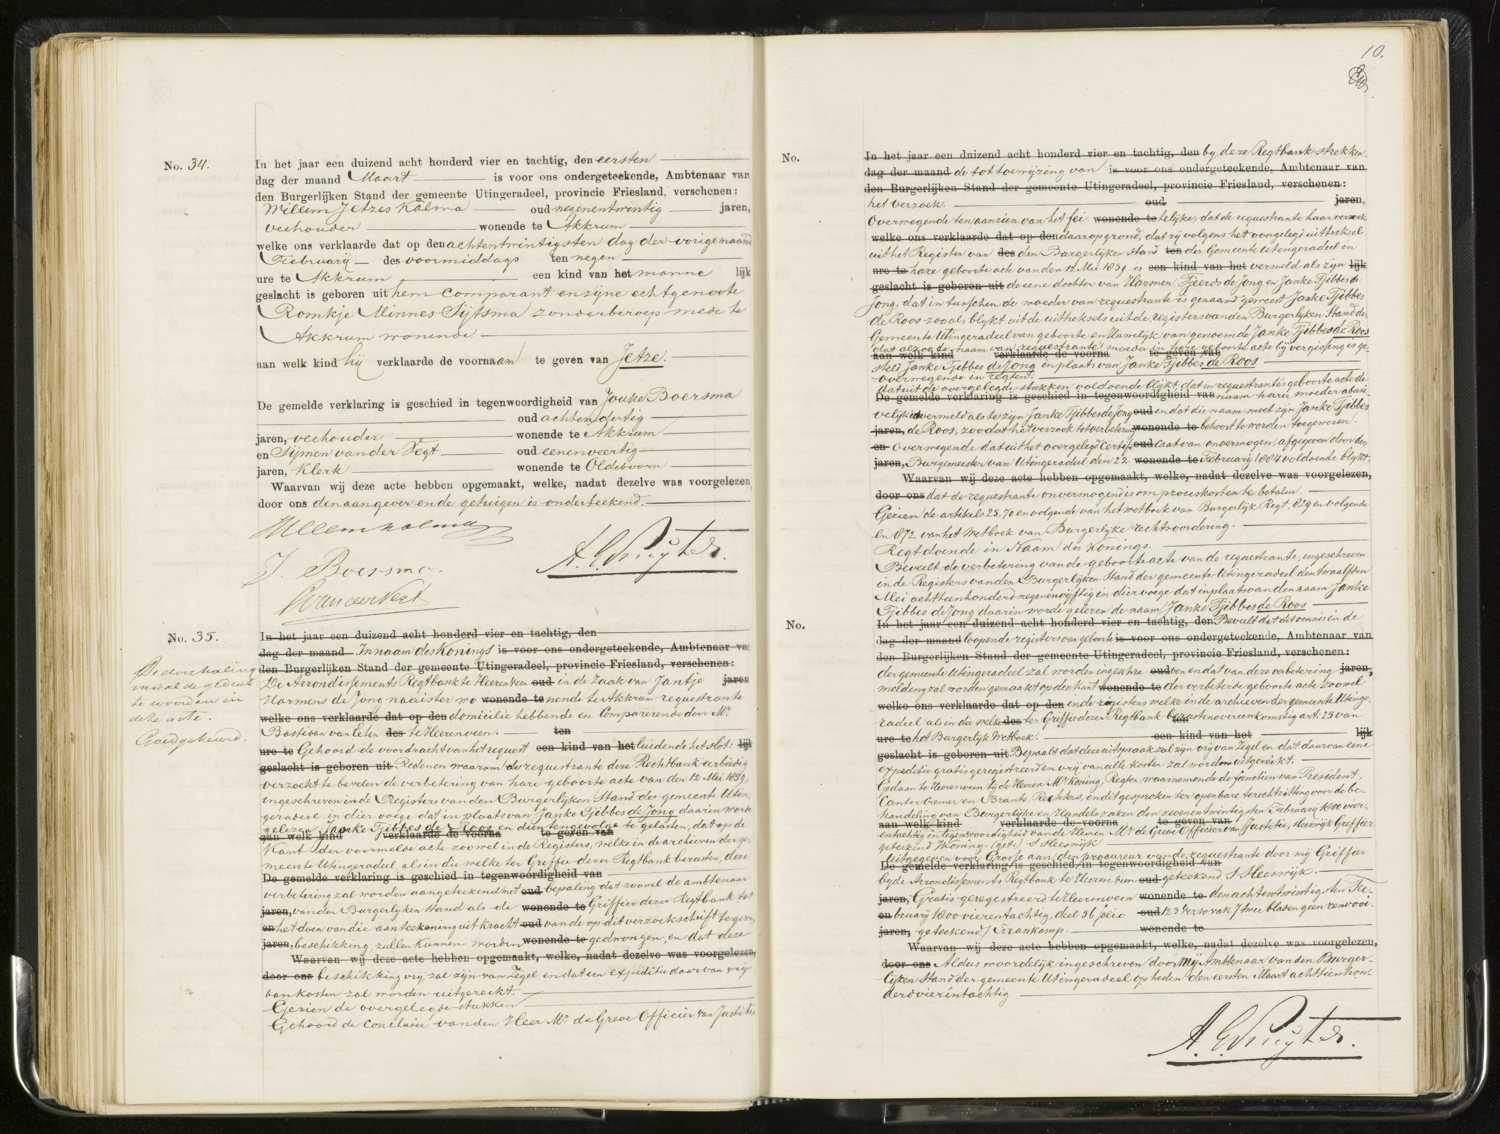 No. 34.
In het jaar een duizend acht honderd vier en tachtig, den eersten
dag der maand Maart is voor ons ondergeteekende, Ambtenaar van
den Burgerlijken Stand der gemeente Utingeradeel, provincie Friesland, verschenen:
Willem Jetzes Kalma oud negenentwintig jaren,
veehouder wonende te Akkrum
welke ons verklaarde dat op den achtentwintigsten dag der vorige maand
Februarij des voormiddags ten negen
ure te Akkrum een kind van het manne lijk
geslacht is geboren uit hem comparant en zijne echtgenoote
Romkje Minnes Sijtsma zonder beroep mede te
Akkrum wonende
aan welk kind hij verklaarde de voornaam te geven van Jetze.
De gemelde verklaring is geschied in tegenwoordigheid van Jouke Boersma
oud achtendertig
jaren, veehouder wonende te Akkrum
en Sijmen van der Vegt oud eenenveertig
jaren, Klerk wonende te Oldeboorn
Waarvan wij deze acte hebben opgemaakt, welke, nadat dezelve was voorgelezen
door ons den aangever en de getuigen is onderteekend.
Willem Kalma
J. Boersma.
A. E. Pruijter.
S van der Vegt
No. 35.
De doorhaling
van al de gedrukte
woorden in
deze acte.
Goedgekeurd.
In het jaar een duizend acht honderd vier en tachtig, den
dag der maand In naam des Konings is voor ons ondergeteekende, Ambtenaar van
den Burgerlijken Stand der gemeente Utingeradeel, provincie Friesland, verschenen:
De Arrondissements Regtbank te Heerenveen oud in de zaak van Jantje jaren
Harmens de Jong naaister wo wonende te nende te Akkrum requestrante
welke ons verklaarde dat op den domicilie hebbende en Comparerende door Mr
van des te Heerenveen. ten
ure te Gehoord de voordracht van het request een kind van het luidende het slot: lijk
geslacht is geboren uit Redenen waarom de requestrante deze Rechtbank eerbiedig
verzoekt te bevelen de verbetering van hare geboorte acte van den 12 Mei 1859,
ingeschreven in de Registers van den Burgerlijken Stand der gemeente Utin-
geradeel, in dier voege dat in plaats van Janke Tjibbes de Jong daarin worde
gelezen Janke Tjibbes de Roos en dien tengevolge te gelasten, dat op de
aan welk kind verklaarde de voorna te geven van
kant der voormelde acte zoowel in de Registers, welke in de archieven der ge-
meente Utingeradeel, als in die welke ter Griffie dezer Regtbank berusten, deze
De gemelde verklaring is geschied in tegenwoordigheid van
verbetering zal worden aangeteekend met oud bepaling dat zoowel de ambtenaar
jaren, van den Burgerlijken Stand als de wonende te Griffier dezer Regtbank tot
en het doen van die aanteekening uit kracht oud van de op dit verzoekschrift te geven
jaren, beschikking zullen kunnen worden wonende te gedwongen, en dat deze
Waarvan wij deze acte hebben opgemaakt, welke, nadat dezelve was voorgelezen,
door ons beschikking vrij zal zijn van Zegel en dat een expeditie daarvan vrij
van kosten zal worden uitgereikt.
Gezien de overgelegde stukken
Gehoord de conclusie van den Heer Mr de Greve Officier van Justitie
10.
No.
In het jaar een duizend acht honderd vier en tachtig, den bij deze Regtbank strekken-
dag der maand de tot toewijzing van is voor ons ondergeteekende, Ambtenaar van
den Burgerlijken Stand der gemeente Utingeradeel, provincie Friesland, verschenen:
het verzoek. oud jaren,
Overwegende ten aanzien van het fei wonende te telijke; dat de requestrante haar verzoek
welke ons verklaarde dat op den daarop grond, dat zij volgens het overgelegd uittreksel
uit het Register van des den Burgerlijken Stand ten der Gemeente Utingeradeel en
ure te hare geboorte acte van den 12 Mei 1859 is een kind van het vermeld als zijn lijk
geslacht is geboren uit de eene dochter van Harmen Tjeerds de Jong en Janke Tjibbes de
Jong, dat in tusschen de moeder van requestrante is genaamd geweest Janke Tjibbes
de Roos zooals blijkt uit de uittreksels uit de registers van den Burgerlijken Stand der
Gemeente Utingeradeel van geboorte en Huwelijk van genoemde Janke Tjibbes de Roos
dat alzoo de naam van requestrantes moeder in hare geboorte acte bij vergissing is ge-
aan welk kind verklaarde de voorna te geven van
steld Janke Tjibbes de Jong in plaats van Janke Tjibbes de Roos
Overwegende in regten:
dat uit de overgelegde stukken voldoende blijkt, dat in requestrantes geboorte acte de
De gemelde verklaring is geschied in tegenwoordigheid van naam harer moeder abusi-
velijk is vermeld als te zijn Janke Tjibbes de Jong oud en dat die naam moet zijn Janke Tjibbes
jaren, de Roos, zoodat het verzoek tot verbetering wonende te behoort te worden toegewezen.
en Overwegende dat uit het overgelegd certifi oud caat van onvermogen, afgegeven door den
jaren, Burgemeester van Utingeradeel den 22 wonende te Februarij 1884 voldoende blijkt,
Waarvan wij deze acte hebben opgemaakt, welke, nadat dezelve was voorgelezen,
door ons dat de requestrante onvermogend is om proceskosten te betalen.
Gezien de artikels 25, 70 en volgende van het Wetboek van Burgerlijk Regt, 829 en volgende
en 872 van het Wetboek van Burgerlijke rechtsvordering.
Regt doende in Naam des Konings.
Beveelt de verbetering van de geboorte acte van de requestrante, ingeschreven
in de Registers van den Burgerlijken Stand der gemeente Utingeradeel den twaalfden
Mei achttienhonderd negenenvijftig en dier voege dat in plaats van den naam Janke
Tjibbes de Jong daarin worde gelezen de naam Janke Tjibbes de Roos
No.
In het jaar een duizend acht honderd vier en tachtig, den Beveelt dat dit vonnis in de
dag der maand loopende registers van geboorte is voor ons ondergeteekende, Ambtenaar van
den Burgerlijken Stand der gemeente Utingeradeel, provincie Friesland, verschenen:
der gemeente Utingeradeel zal worden ingeschre oud ven en dat van deze verbetering jaren,
melding zal worden gemaakt op den kant wonende te der verbeterde geboorte acte zoowel
welke ons verklaarde dat op den in de registers welke in de archieven der gemeente Utinge-
radeel als in die welke des ter Griffie dezer Regtbank berusten overeenkomstig art. 25 van
ure te het Burgerlijk Wetboek. een kind van het lijk
geslacht is geboren uit Bepaalt dat deze uitspraak zal zijn vrij van Zegel en dat daarvan eene
expeditie gratis geregistreerd en vrij van alle kosten zal worden uitgereikt.
Gedaan te Heerenveen bij de Heeren Mr Koning, Regter, waarnemende de functien van President,
Cantor Cremer en Brants, Rechters, en uitgesproken ter openbare terechtzitting voor de be-
handeling van Burgerlijke en Handelszaken den zevenentwintigsten Februarij 1800 vier-
aan welk kind verklaarde de voorna te geven van
entachtig in tegenwoordigheid van de Heeren Mr de Greve Officier van Justitie, Heeswijk Griffier
geteekend W Koning. (get.) S Heeswijk
Uitgegeven voor Grosse aan den procureur van de requestrante door mij Griffier
De gemelde verklaring is geschied in tegenwoordigheid van
bij de Arrondissements Regtbank te Heerenveen oud geteekend S Heeswijk.
jaren, Gratis geregistreerd te Heerenveen wonende te den achtentwintigsten Fe-
en bruarij 1800 vierentachtig, deel 36 folio oud 123 verso vak 7 twee bladen geen renvooi.
jaren, geteekend / Frankamp. wonende te
Waarvan wij deze acte hebben opgemaakt, welke, nadat dezelve was voorgelezen,
door ons Aldus woordelijk ingeschreven door Mij Ambtenaar van den Burger-
lijken Stand der gemeente Utingeradeel op heden den eersten Maart achttienhon-
derd vierentachtig
A. E. Pruijter.